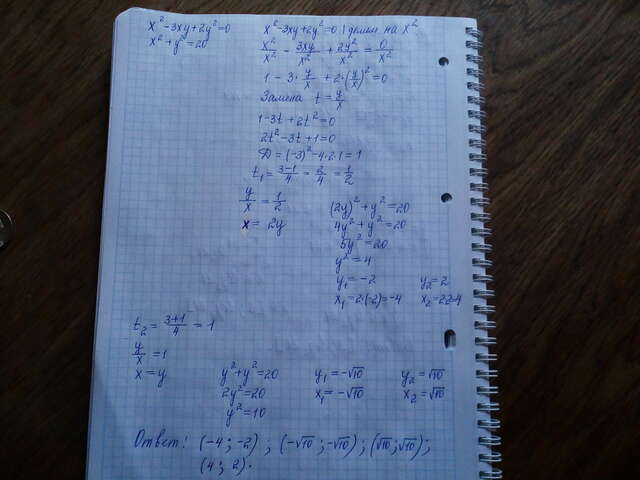 x² - 3xy + 2y² = 0
x² + y² = 20
x² - 3xy + 2y² = 0 | делим на x²
x²/x² - 3xy/x² + 2y²/x² = 0/x²
1 - 3 · y/x + 2 · (y/x)² = 0
Замена t = y/x
1 - 3t + 2t² = 0
2t² - 3t + 1 = 0
D = (-3)² - 4 · 2 · 1 = 1
t₁ = (3-1)/4 = 2/4 = 1/2
y/x = 1/2
x = 2y
(2y)² + y² = 20
4y² + y² = 20
5y² = 20
y² = 4
y₁ = -2 y₂ = 2
x₁ = 2·(-2) = -4 x₂ = 2·2=4
t₂ = (3+1)/4 = 1
y/x = 1
x = y
y² + y² = 20
2y² = 20
y² = 10
y₁ = -√10 y₂ = √10
x₁ = -√10 x₂ = √10
Ответ: (-4; -2) ; (-√10; -√10) ; (√10; √10) ;
(4; 2).